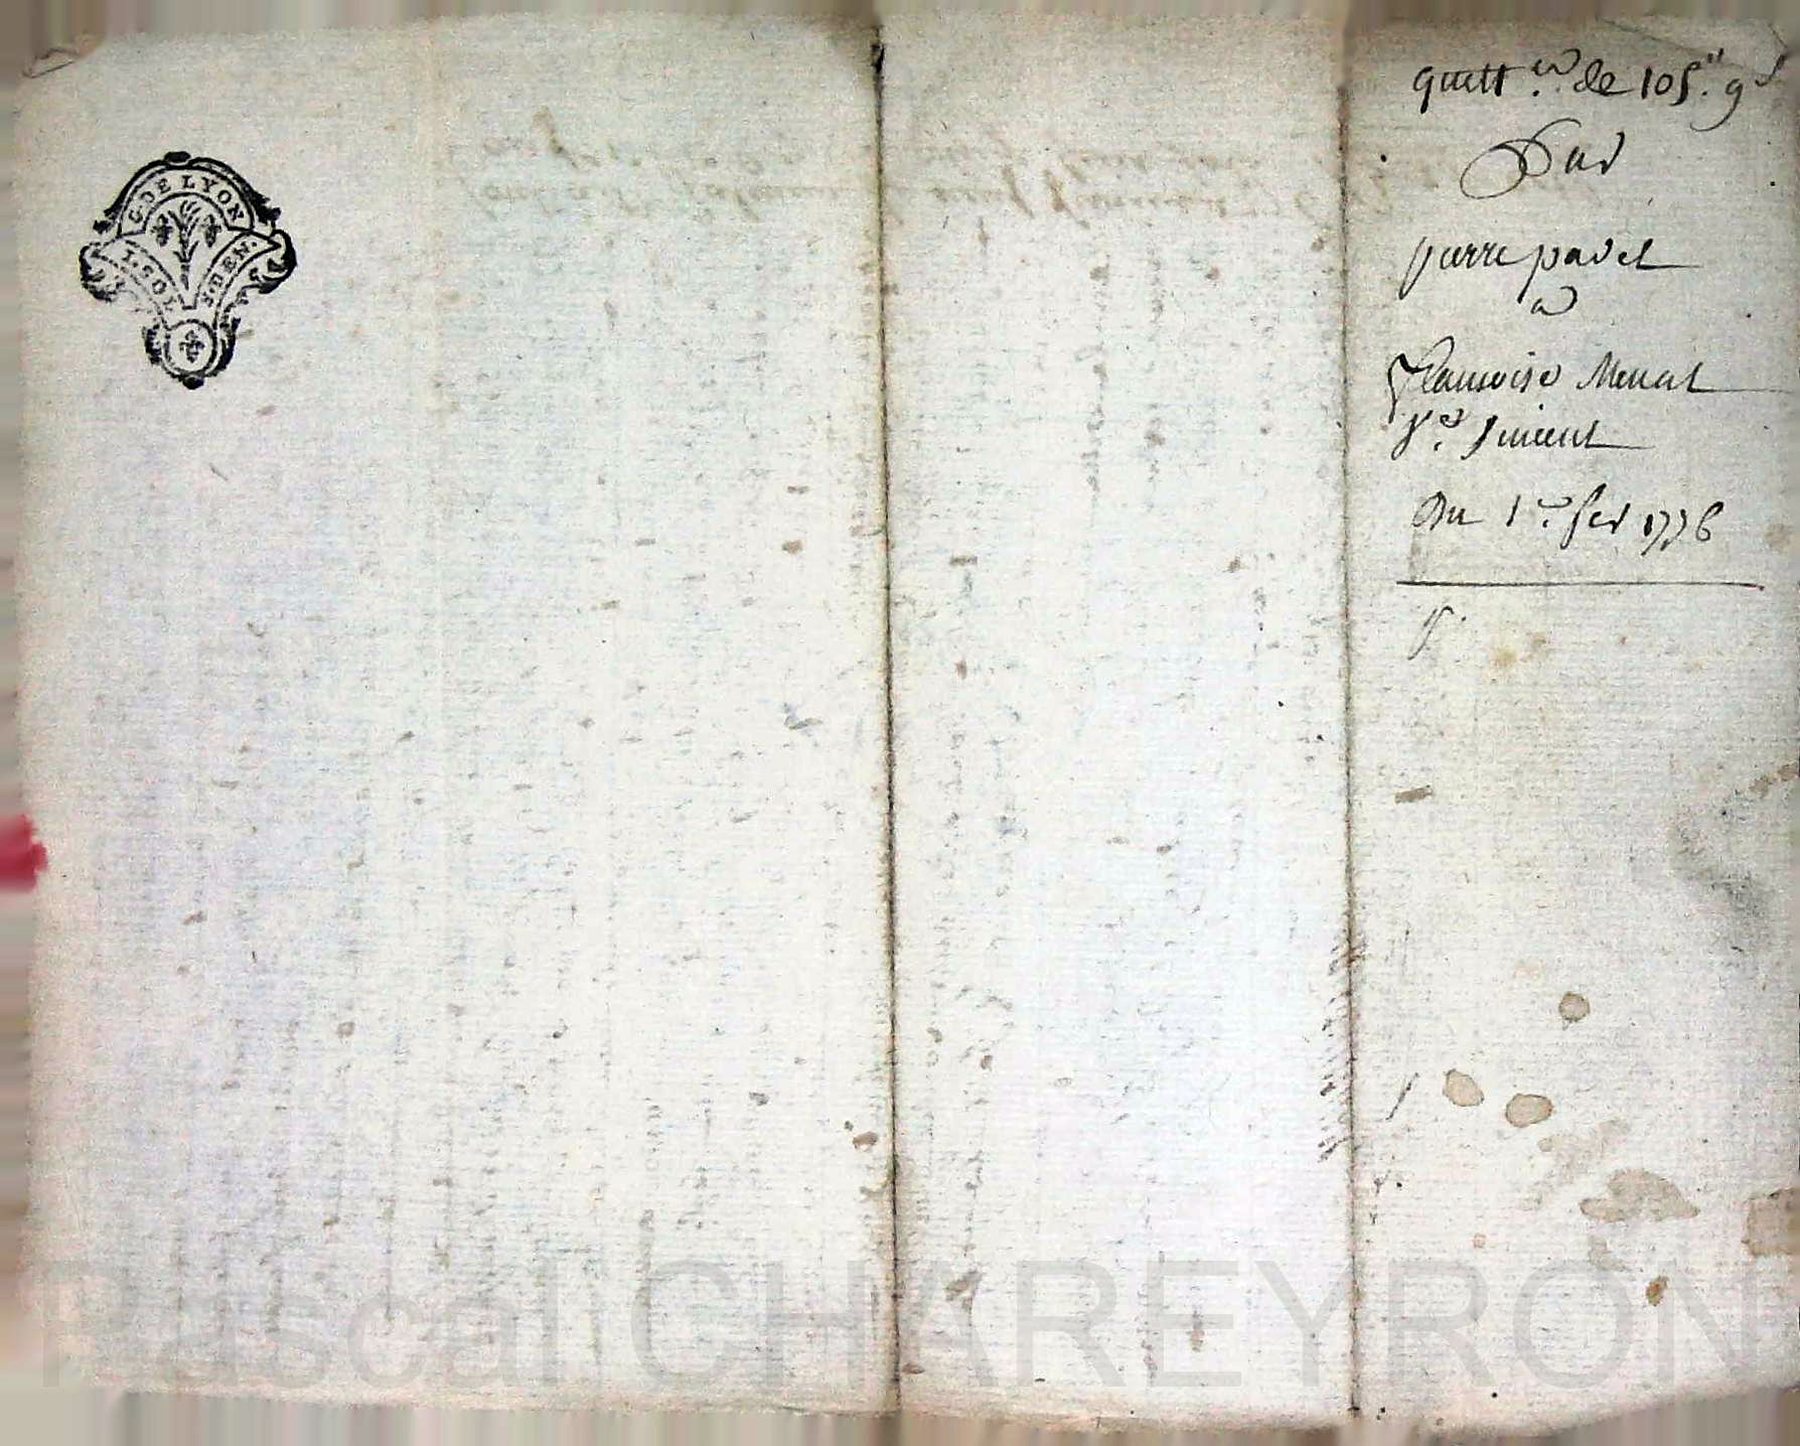 G. DE LYON
1. SOL 8. DEN.
quitt.ce de 105.# 9 s
Par
pierre padet
a
francoise Menat
v.e Vincent
Du 1.er fev 1776
Pascal CHAREYRON